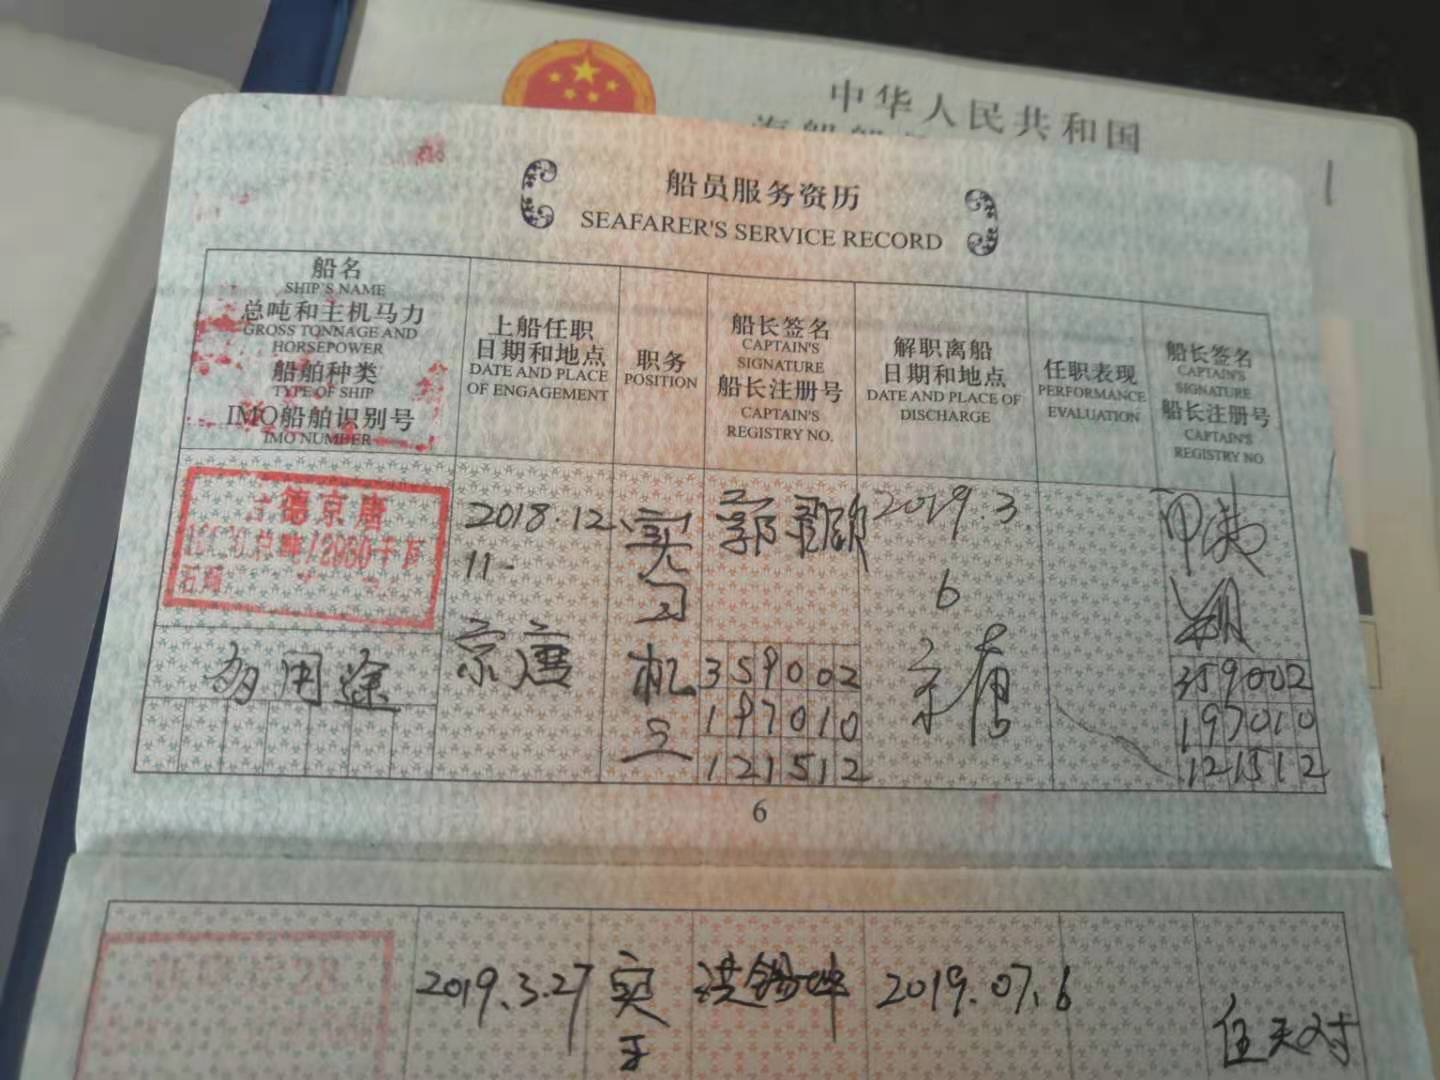 中华人民共和国
船员服务资历
SEAFARER'S SERVICE RECORD
船名
SHIP'S NAME
总吨和主机马力
GROSS TONNAGE AND
HORSEPOWER
船舶种类
TYPE OF SHIP
IMO船舶识别号
IMO NUMBER
上船任职
日期和地点
DATE AND PLACE
OF ENGAGEMENT
职务
POSITION
船长签名
CAPTAIN'S
SIGNATURE
船长注册号
CAPTAIN'S
REGISTRY NO.
解职离船
日期和地点
DATE AND PLACE OF
DISCHARGE
任职表现
PERFORMANCE
EVALUATION
船长签名
CAPTAIN'S
SIGNATURE
船长注册号
CAPTAIN'S
REGISTRY NO
德京唐
总吨/2980千瓦
多用途
2018.12.
11
京唐
实
习
机
工
郭
359002
197010
121512
2019.3.
6
京唐
359002
197010
121512
6
2019.3.27
实
洪锡坤
2019.07.6